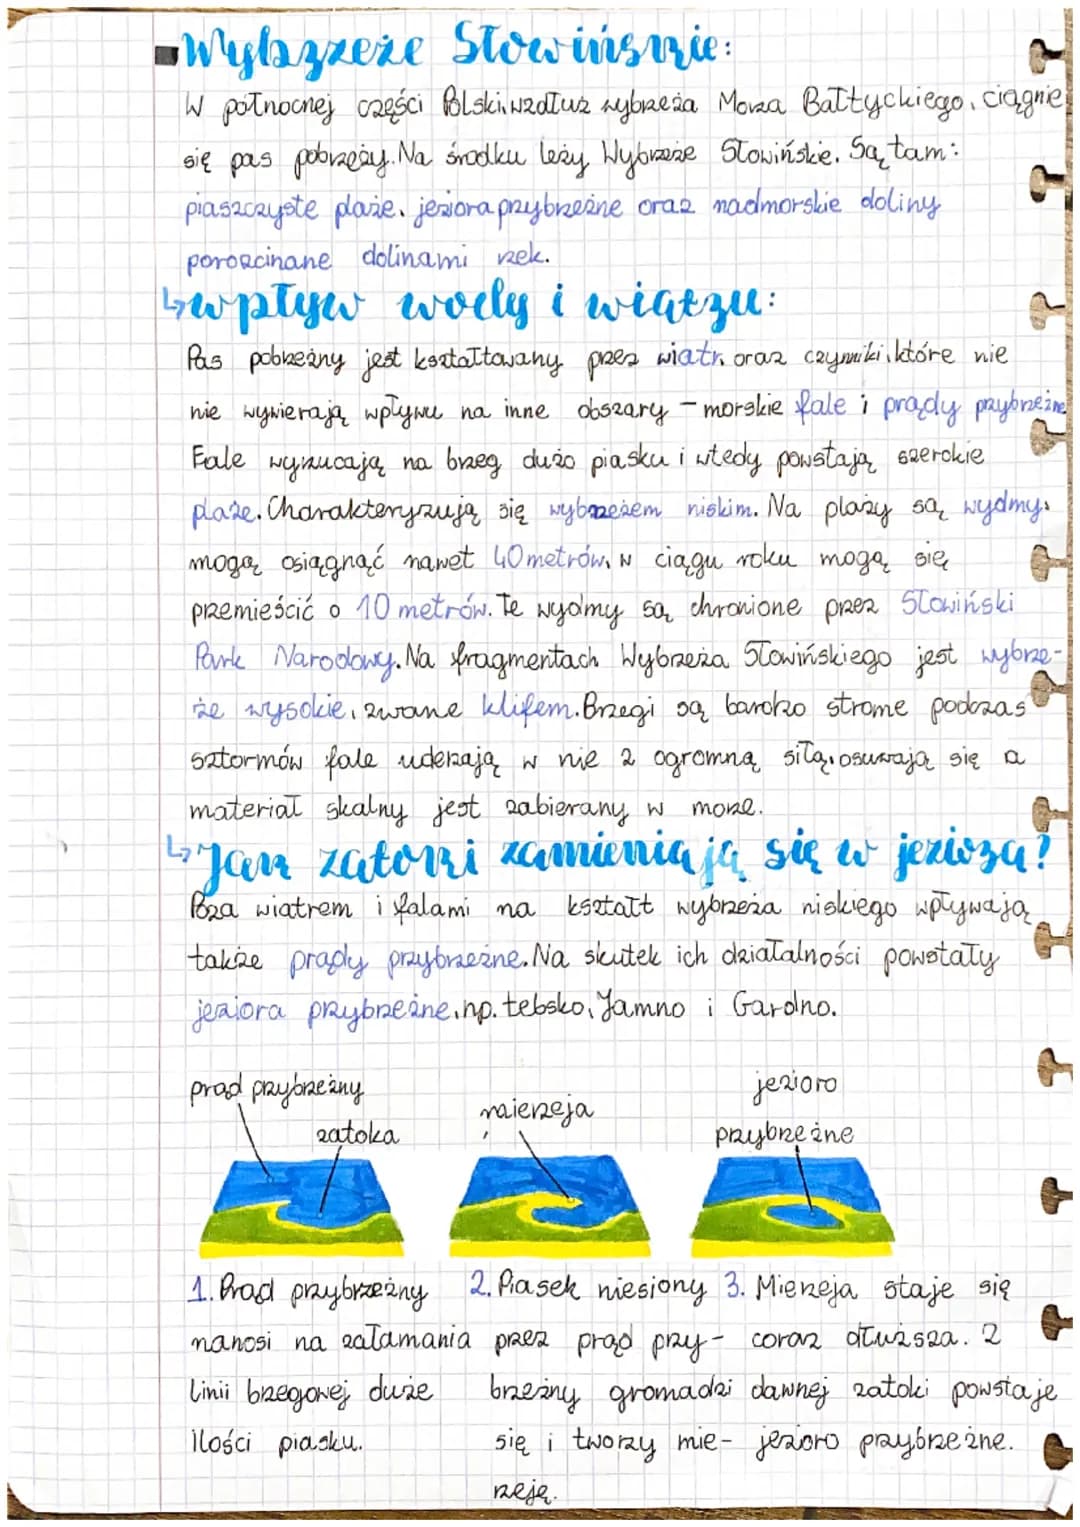 Wybrzeże Słowińskie:
W północnej części Polski, wzdłuż wybrzeża Morza Bałtyckiego, ciągnie
się pas pobrzeży. Na środku leży Wybrzeże Słowińskie. Są tam:
piaszczyste plaże, jeziora przybrzeżne oraz nadmorskie doliny
porozcinane dolinami rzek.
↳wpływ wody i wiatru:
Pas pobrzeżny jest kształtowany przez wiatr oraz czynniki, które nie
nie wywierają wpływu na inne obszary - morskie fale i prądy przybrzeżne
Fale wyrzucają na brzeg dużo piasku i wtedy powstają szerokie
plaże. Charakteryzują się wybrzeżem niskim. Na plaży są wydmy,
mogą osiągnąć nawet 40 metrów, w ciągu roku mogą się
przemieścić o 10 metrów. Te wydmy są chronione przez Słowiński
Park Narodowy. Na fragmentach Wybrzeża Słowińskiego jest wybrze-
że wysokie, zwane klifem. Brzegi są bardzo strome podczas
sztormów fale uderzają w nie z ogromną siłą, osuwają się a
materiał skalny jest zabierany w morze.
↳Jak zatoki zamieniają się w jeziora?
Poza wiatrem i falami na kształt wybrzeża niskiego wpływają
także prądy przybrzeżne. Na skutek ich działalności powstały
jeziora przybrzeżne, np. Łebsko, Jamno i Gardno.
prąd przybrzeżny
zatoka
mierzeja
jezioro
przybrzeżne
1. Prąd przybrzeżny
nanosi na załamania
linii brzegowej duże
ilości piasku.
2. Piasek niesiony
przez prąd przy-
brzeżny gromadzi
się i tworzy mie-
rzeję.
3. Mierzeja staje się
coraz dłuższa. Z
dawnej zatoki powstaje
jezioro przybrzeżne.